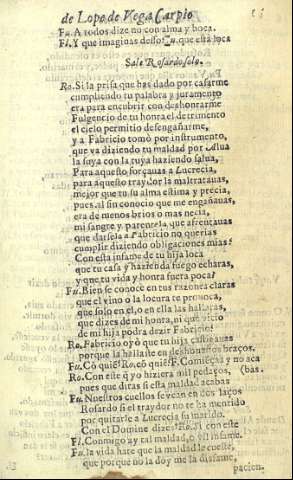 de Lope de Vega Carpio
Fu. A todos dize no con alma y boca.
Fl. Y que imaginas desso? Fu. que està loca
Sale Rosardo solo.
Ro. Si la prisa que has dado por casarme
cumpliendo tu palabra y juramento
era para encubrir con deshonrarme
Fulgencio de tu honra el detrimento
el cielo permitio desengañarme,
y a Fabricio tomò por instrumento,
que va diziendo tu maldad por
la suya con la tuya haziendo salua,
Para aquesto forçauas a Lucrecia,
para aquesto traydor la maltratauas,
mejor que tu su alma estima y precia,
pues al fin conocio que me engañauas,
era de menos brios o mas necia,
mi sangre y parentela que afrentauas
que darsela a Fabricio no querias
cumplir diziendo obligaciones mias?
Con esta infame de tu hija loca
que tu casa y hazienda fuego echaras,
y que tu vida y honra fuera poca?
Fu. Bien se conoce en tus razones claras
que el vino o la locura te prouoca,
que solo en el, o en ella las hallaras,
que dizes de mi honra, ni que vicio
de mi hija podra dezir Fabricio?
Ro. Fabricio oyò que tu hija castigauas
porque la hallaste en deshonrados braços.
Fu. Cò quiẽ? Ro. cò quiẽ? F. Comieças y no aca
Ro. Con este q̃ yo hiziera mil pedaços, (bas.
pues que ditas si esta maldad acabas
Fu. Nuestros cuellos se vean en dos laços
Rosardo si el traydor no te ha mentido
por quitarle a Lucrecia su marido.
Con el Domine dizes? Ro. Si con este
Fl. Conmigo ay tal maldad, o vil infame.
Fu. la vida hare que la maldad le cueste,
que porque no la doy me la disfame,
pacien.